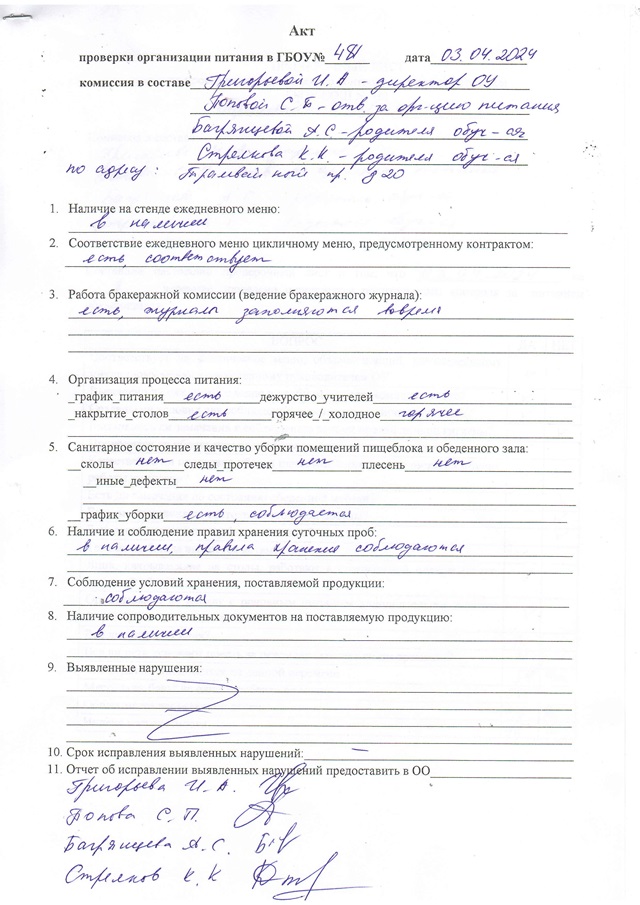 Акт
проверки организации питания в ГБОУ№ 481 дата 03.04.2024
комиссия в составе Григорьевой И. А - директор ОУ
Поповой С. П - отв. за орг-цию питания
Багрянцевой А.С. - родителя обуч-ся
Стрелкова К.К. - родителя обуч-ся
по адресу: Трамвайный пр. д 20
1. Наличие на стенде ежедневного меню:
в наличии
2. Соответствие ежедневного меню цикличному меню, предусмотренному контрактом:
есть, соответствует
3. Работа бракеражной комиссии (ведение бракеражного журнала):
есть, журналы заполняются вовремя
4. Организация процесса питания:
_график_питания есть дежурство_учителей есть
_накрытие_столов есть горячее_/_холодное горячее
5. Санитарное состояние и качество уборки помещений пищеблока и обеденного зала:
__сколы нет следы_протечек нет плесень нет
__иные_дефекты нет
__график_уборки есть, соблюдается
6. Наличие и соблюдение правил хранения суточных проб:
в наличии, правила хранения соблюдаются
7. Соблюдение условий хранения, поставляемой продукции:
соблюдаются
8. Наличие сопроводительных документов на поставляемую продукцию:
в наличии
9. Выявленные нарушения:
10. Срок исправления выявленных нарушений: —
11. Отчет об исправлении выявленных нарушений предоставить в ОО
Григорьева И. А.
Попова С. П.
Багрянцева А. С.
Стрелков К. К